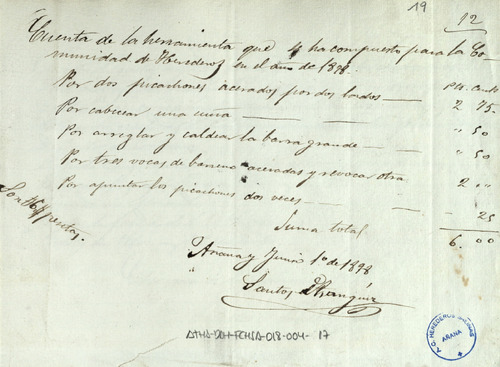 19
12
Cuenta de la herramienta que se ha compuesto para la Co
munidad de Herederos en el año de 1898.
Pts. Cents
Por dos picachones acerados por dos lados — 2 75.
Por cabecear una cuña — " 50
Por arreglar y caldear la barra grande — " 50
Por tres vocas de barreno aceradas y revocar otra 2 ""
Por apuntar los picachones dos veces — 25
Suma total. 6.00
Son 6 pesetas.
Añana y Junio 1º de 1898
Santos
ATHA-DAH-FCHSA-018-004-17
HEREDEROS
AÑANA